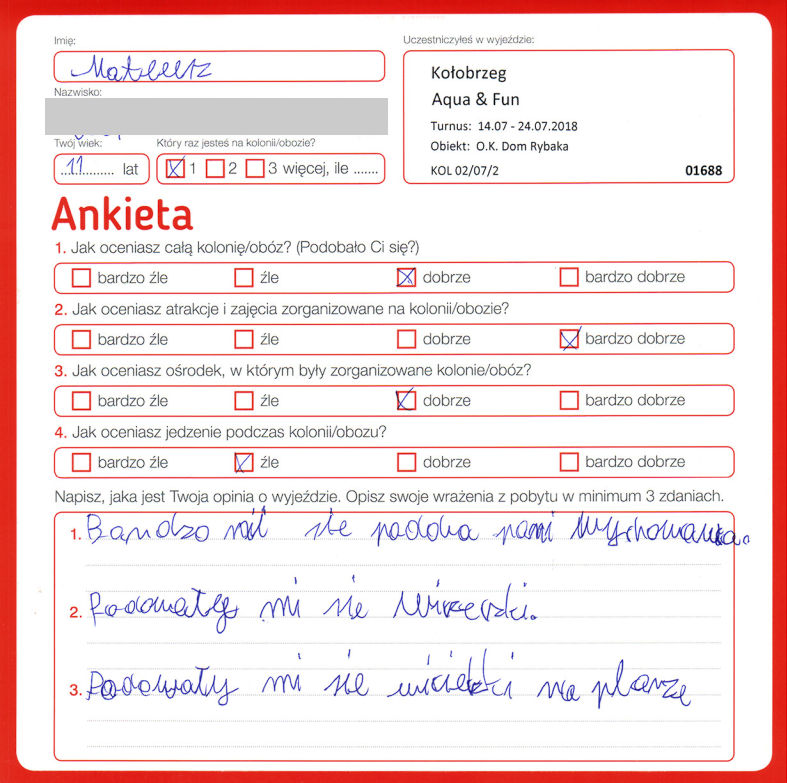 Imię:
Mateusz
Uczestniczyłeś w wyjeździe:
Kołobrzeg
Aqua & Fun
Turnus: 14.07 - 24.07.2018
Obiekt: O.K. Dom Rybaka
KOL 02/07/2 01688
Nazwisko:
Twój wiek:
11 lat
Który raz jesteś na kolonii/obozie?
1 2 3 więcej, ile .......
Ankieta
1. Jak oceniasz całą kolonię/obóz? (Podobało Ci się?)
bardzo źle źle dobrze bardzo dobrze
2. Jak oceniasz atrakcje i zajęcia zorganizowane na kolonii/obozie?
bardzo źle źle dobrze bardzo dobrze
3. Jak oceniasz ośrodek, w którym były zorganizowane kolonie/obóz?
bardzo źle źle dobrze bardzo dobrze
4. Jak oceniasz jedzenie podczas kolonii/obozu?
bardzo źle źle dobrze bardzo dobrze
Napisz, jaka jest Twoja opinia o wyjeździe. Opisz swoje wrażenia z pobytu w minimum 3 zdaniach.
1. Bardzo sie podoba pani
2. mi sie
3. mi sie na plarze